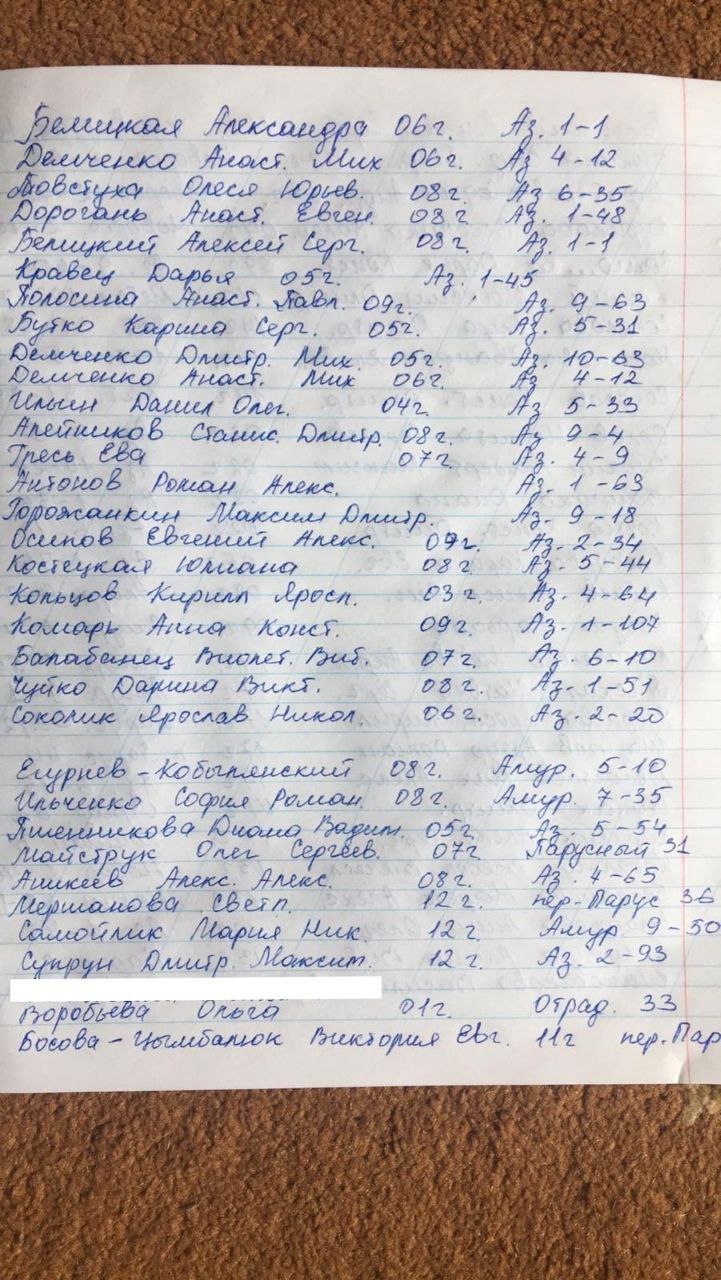 Белицкая Александра 06г. Аз. 1-1
Демченко Анаст. Мих 06г. Аз 4-12
Товстуха Олеся Юрьев. 08г. Аз 6-35
Дорогань Анаст. Евген. 08г. Аз. 1-48
Белицкий Алексей Серг. 08г. Аз. 1-1
Кравец Дарья 05г. Аз. 1-45
Полосина Анаст. Павл. 09г. Аз. 9-63
Бутко Карина Серг. 05г. Аз. 5-31
Демченко Дмитр. Мих. 05г. Аз. 10-63
Демченко Анаст. Мих 06г. Аз 4-12
Ильин Данил Олег. 04г. Аз 5-33
Алейников Станис. Дмитр. 08г. Аз 9-4
Гресь Ева 07г. Аз. 4-9
Антонов Роман Алекс. Аз. 1-63
Горожанкин Максим Дмитр. Аз. 9-18
Осипов Евгений Алекс. 09г. Аз. 2-34
Костецкая Юлиана 08г. Аз. 5-44
Кольцов Кирилл Яросл. 03г. Аз. 4-64
Комарь Анна Конст. 09г. Аз. 1-107
Балабанец Виолет. Вит. 07г. Аз. 6-10
Чуйко Дарина Викт. 08г. Аз. 1-51
Соколик Ярослав Никол. 06г. Аз. 2-20
Егурнев-Кобылянский 08г. Амур. 5-10
Ильченко София Роман. 08г. Амур. 7-35
Пшенникова Диана Вадим. 05г. Аз. 5-54
Майструк Олег Сергеев. 07г. Парусный 31
Аникеев Алекс. Алекс. 08г. Аз. 4-65
Мершанова Светл. 12г. пер. Парус 36
Самойлик Мария Ник. 12г. Амур. 9-50
Супрун Дмитр. Максим. 12г. Аз. 2-93
Воробьева Ольга 01г. Отрад. 33
Босова-Цымбалюк Виктория Евг. 11г пер. Пар